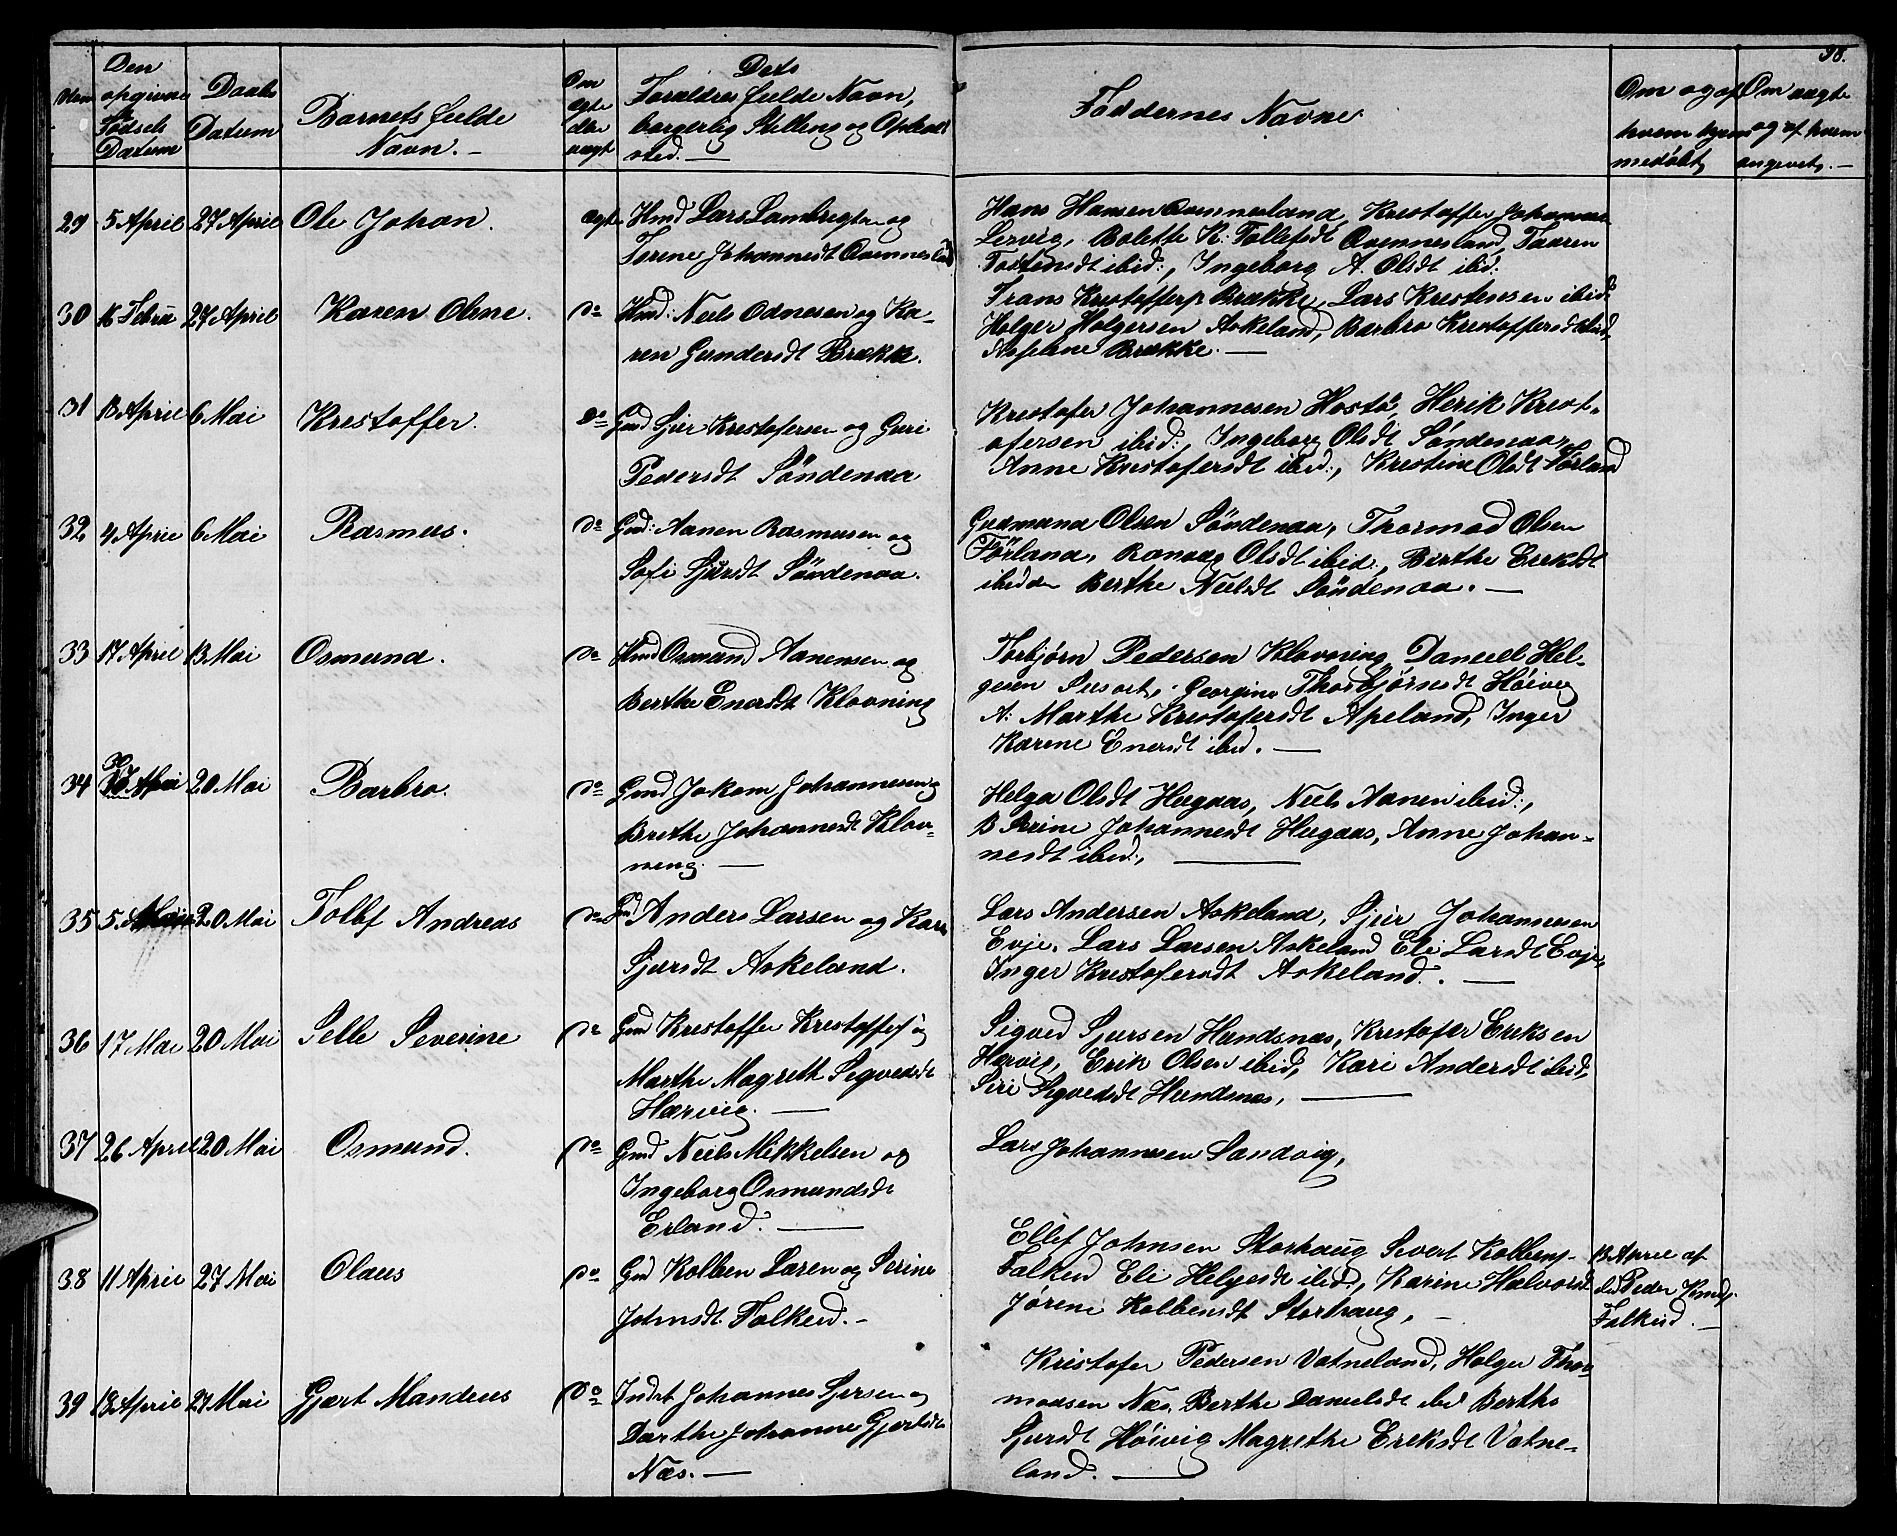 38.
Den opgivne Fødsels Datum
Daabs Datum
Barnets fulde Navn. —
Om ægte eller uægt
Dets Forældres fulde Navn, borgerlig Stilling og Opholdsted. —
Faddernes Navne
Om og af hvem hjemmedøbt
Om uægte og af hvem angivet. —
29 5 April 27 April Ole Johan. ægte Hmd Lars Lambregtsen og
Torene Johannesdt Qvamnesland
Hans Hansen Qvamnesland, Kristoffer Johannesen
Lervig, Bolette K: Tollefsdt Qvamnesland, Taaren
Tostensdt ibid:, Ingeborg A. Olsdt ibid.
30 16 Febru 27 April Karen Oline. do Hmd: Neels Odnesen og Ka-
ren Gundersdt Brække.
Frans Krestoffersen Brække, Lars Krestensen ibid:
Holger Holgersen Askeland, Barbro Krestoffersdt ibid,
Brække. —
31 13 April 6 Mai Krestoffer. do Gmd Sjur Krestofersen og Guri
Pedersdt Søndenaa
Krestofer Johannesen Hostø, Herik Krest-
ofersen ibid:, Ingeborg Olsdt Søndenaa,
Anne Krestofersdt ibid:, Krestine Olsdt Førland
32 4 April 6 Mai Rasmus. do Gmd: Aanen Rasmusen og
Sofi Sjursdt Søndenaa.
Gudmund Olsen Søndenaa, Thormod Olsen
Førland, Ranvaag Olsdt ibid:, Birthe Ereksdt
ibidem Berthe Neelsdt Søndenaa. —
33 17 April 13 Mai Osmund. do Hmd Osmund Aanensen og
Berthe Enersdt Klovning
Torbjørn Pedersen Klovning, Daneel Hel-
gesen Georgine Thorbjørnsdt Høivig
A: Marthe Krestofersdt Apeland, Inger
Karene Enersdt ibid. —
34 30 April 20 Mai Barbro. do Gmd Jokom Johannesen og
Brethe Johannesdt Klov-
neng. —
Helga Olsdt Hegaas, Neels Aanen ibid:,
B Serine Johannesdt Hegaas, Anne Johan-
nesdt ibid:, —
35 5 20 Mai Tollef Andreas do Gmd Anders Larsen og Kari
Sjursdt Askeland.
Lars Andersen Askeland, Sjur Johannesen
Evje, Lars Larsen Askeland Eli Larsdt Evje,
Inger Krestofersdt Askeland. —
36 17 Mai 20 Mai Selle Severine do Gmd Krestoffer Krestoffers og
Marthe Magreth Segvedsdt
Harvig. —
Sigved Sjursen Hundsnæs, Krestofer Ereksen
Harvig, Erik Olsen ibid, Kari Andersdt ibid,
Siri Sigvedsdt Hundsnæs, —
37 26 April 20 Mai Osmund. do Gmd Neels Mikkelsen og
Ingeborg Osmundsdt
Erland. —
Lars Johannesen Sandvig,
38 11 April 27 Mai Olaus do Gmd Kolben Laren og Serine
Johnsdt Falkeid. —
Ellef Johnsen Storhaug Severt Kolbens-
Falkeid Eli Helgesdt ibid:, Karine Halvorsdt
Jørene Kolbensdt Storhaug, —
13 April af
Peder
Falkeid. —
39 18 April 27 Mai Gjært Mandeus do Indst Johannes Sjursen og
Dorthe Johanne Gjertsdt
Næs. —
Kristofer Pedersen Vatneland, Holger Thor-
modsen Næs, Berthe Danielsdt ibid Berthe
Sjursdt Høivig Magrethe Ereksdt Vatne-
land. —